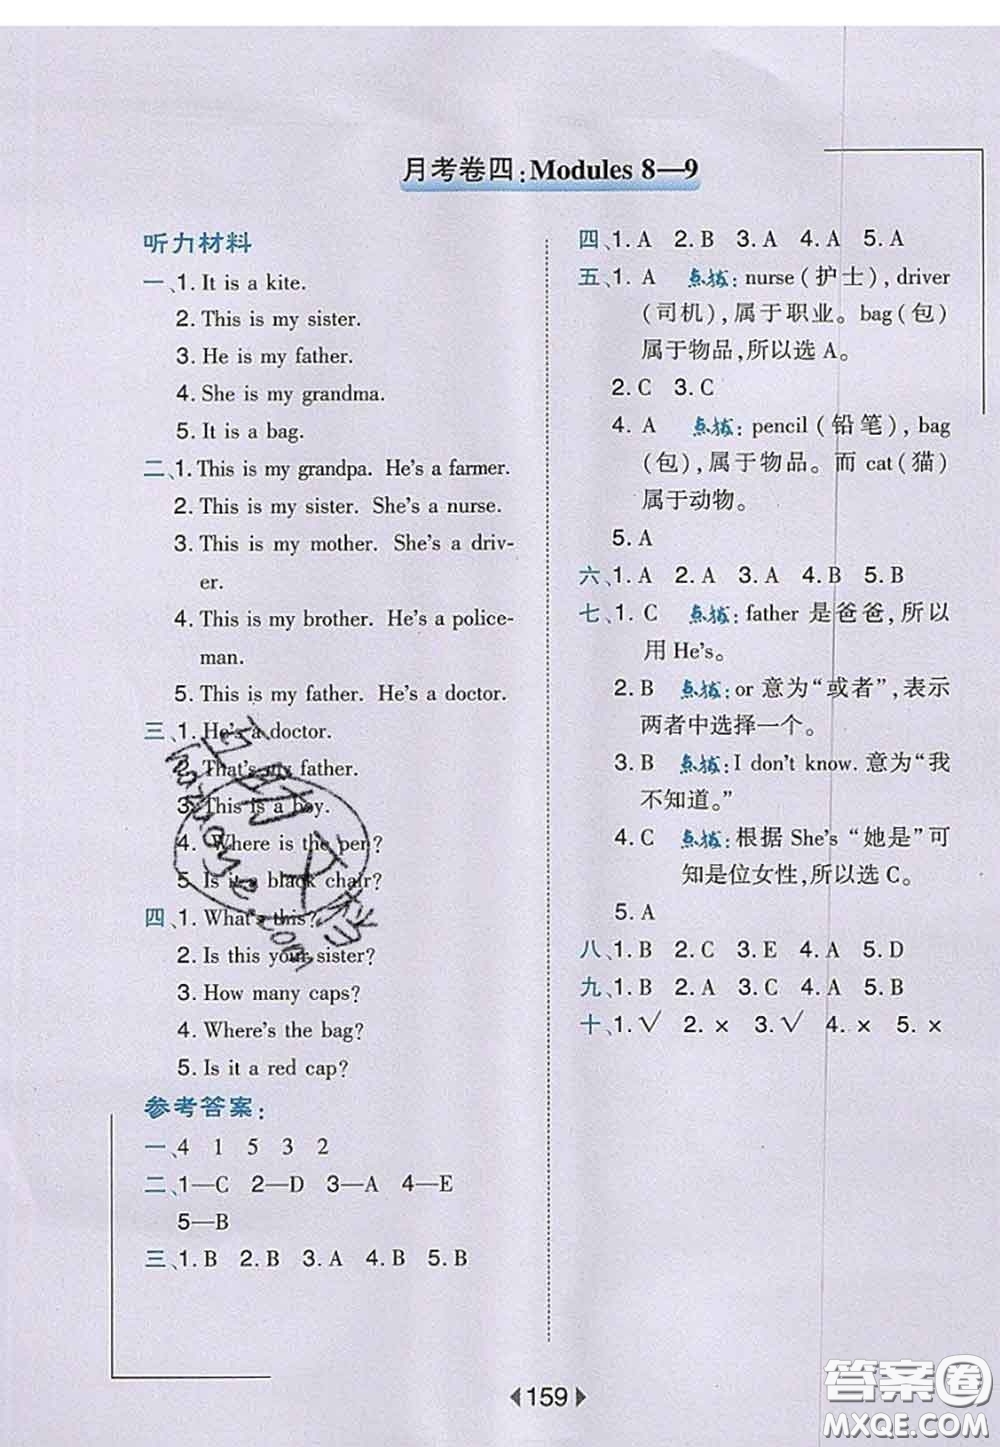 月考卷四:Modules 8—9
听力材料
一、1. It is a kite.
2. This is my sister.
3. He is my father.
4. She is my grandma.
5. It is a bag.
二、1. This is my grandpa. He's a farmer.
2. This is my sister. She's a nurse.
3. This is my mother. She's a driv-
er.
4. This is my brother. He's a police-
man.
5. This is my father. He's a doctor.
三、1. He's a doctor.
2. That's my father.
3. This is a boy.
4. Where is the pen?
5. Is it a black chair?
四、1. What's this?
2. Is this your sister?
3. How many caps?
4. Where's the bag?
5. Is it a red cap?
参考答案:
一、4 1 5 3 2
二、1—C 2—D 3—A 4—E
5—B
三、1. B 2. B 3. A 4. B 5. B
四、1. A 2. B 3. A 4. A 5. A
五、1. A 点拨:nurse(护士),driver
(司机),属于职业。bag(包)
属于物品,所以选A。
2. C 3. C
4. A 点拨:pencil(铅笔),bag
(包),属于物品。而 cat(猫)
属于动物。
5. A
六、1. A 2. A 3. A 4. B 5. B
七、1. C 点拨:father 是爸爸,所以
用 He's。
2. B 点拨:or 意为“或者”,表示
两者中选择一个。
3. B 点拨:I don't know. 意为“我
不知道。”
4. C 点拨:根据 She's “她是”可
知是位女性,所以选 C。
5. A
八、1. B 2. C 3. E 4. A 5. D
九、1. B 2. A 3. C 4. A 5. B
十、1. √ 2. × 3. √ 4. × 5. ×
159
答案圈
MXQE.COM